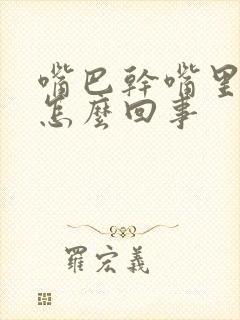 嘴巴幹嘴里
怎麼回事
羅宏義